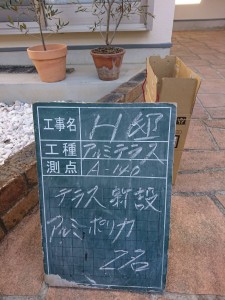 工事名 H邸
工種 アルミテラス
測点 A-140
テラス新設
アルミ、ポリカ
2名